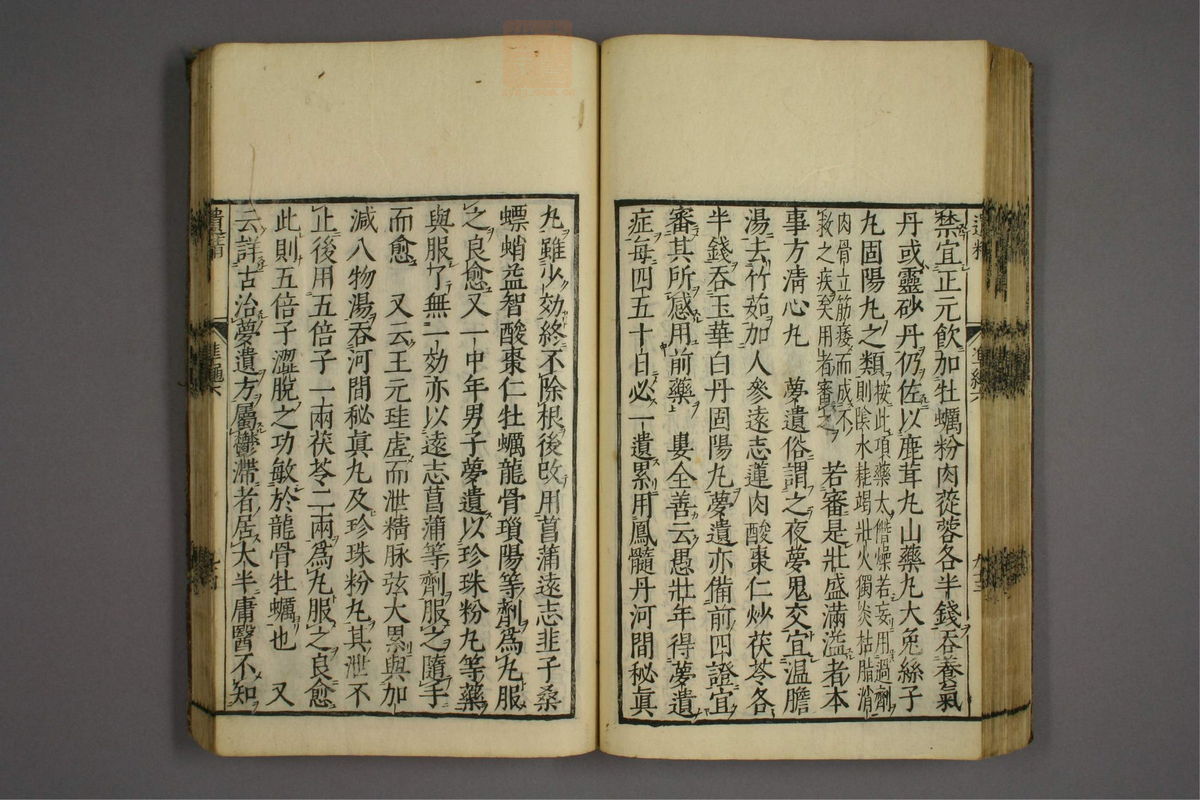 禁宜正元飲加牡蠣粉肉蓯蓉各半錢吞養氣
丹或靈砂丹仍佐以鹿茸丸山藥丸大兔絲子
丸固陽丸之類按此項藥太僭燥若妄用過劑則陰水耗竭壯火獨炎枯脂消
肉骨立筋痿而成不救之疾矣用者審之 若審是壯盛滿溢者本
事方淸心丸 夢遺俗謂之夜夢鬼交宜温膽
湯去竹茹加人參遠志蓮肉酸棗仁炒茯苓各
半錢吞玉華白丹固陽丸夢遺亦備前四證宜
審其所感用前藥 婁全善云愚壯年得夢遺
症每四五十日必一遺累用鳳髓丹河間秘眞
丸雖少効終不除根後改用菖蒲遠志韭子桑
螵蛸益智酸棗仁牡蠣龍骨瑣陽等劑爲丸服
之良愈又一中年男子夢遺以珍珠粉丸等藥
與服了無一効亦以遠志菖蒲等劑服之隨手
而愈 又云王元珪虛而泄精脉弦大累與加
減八物湯吞河間秘眞丸及珍珠粉丸其泄不
止後用五倍子一兩茯苓二兩爲丸服之良愈
此則五倍子澀脫之功敏於龍骨牡蠣也 又
云詳古治夢遺方屬鬱滯者居太半庸醫不知